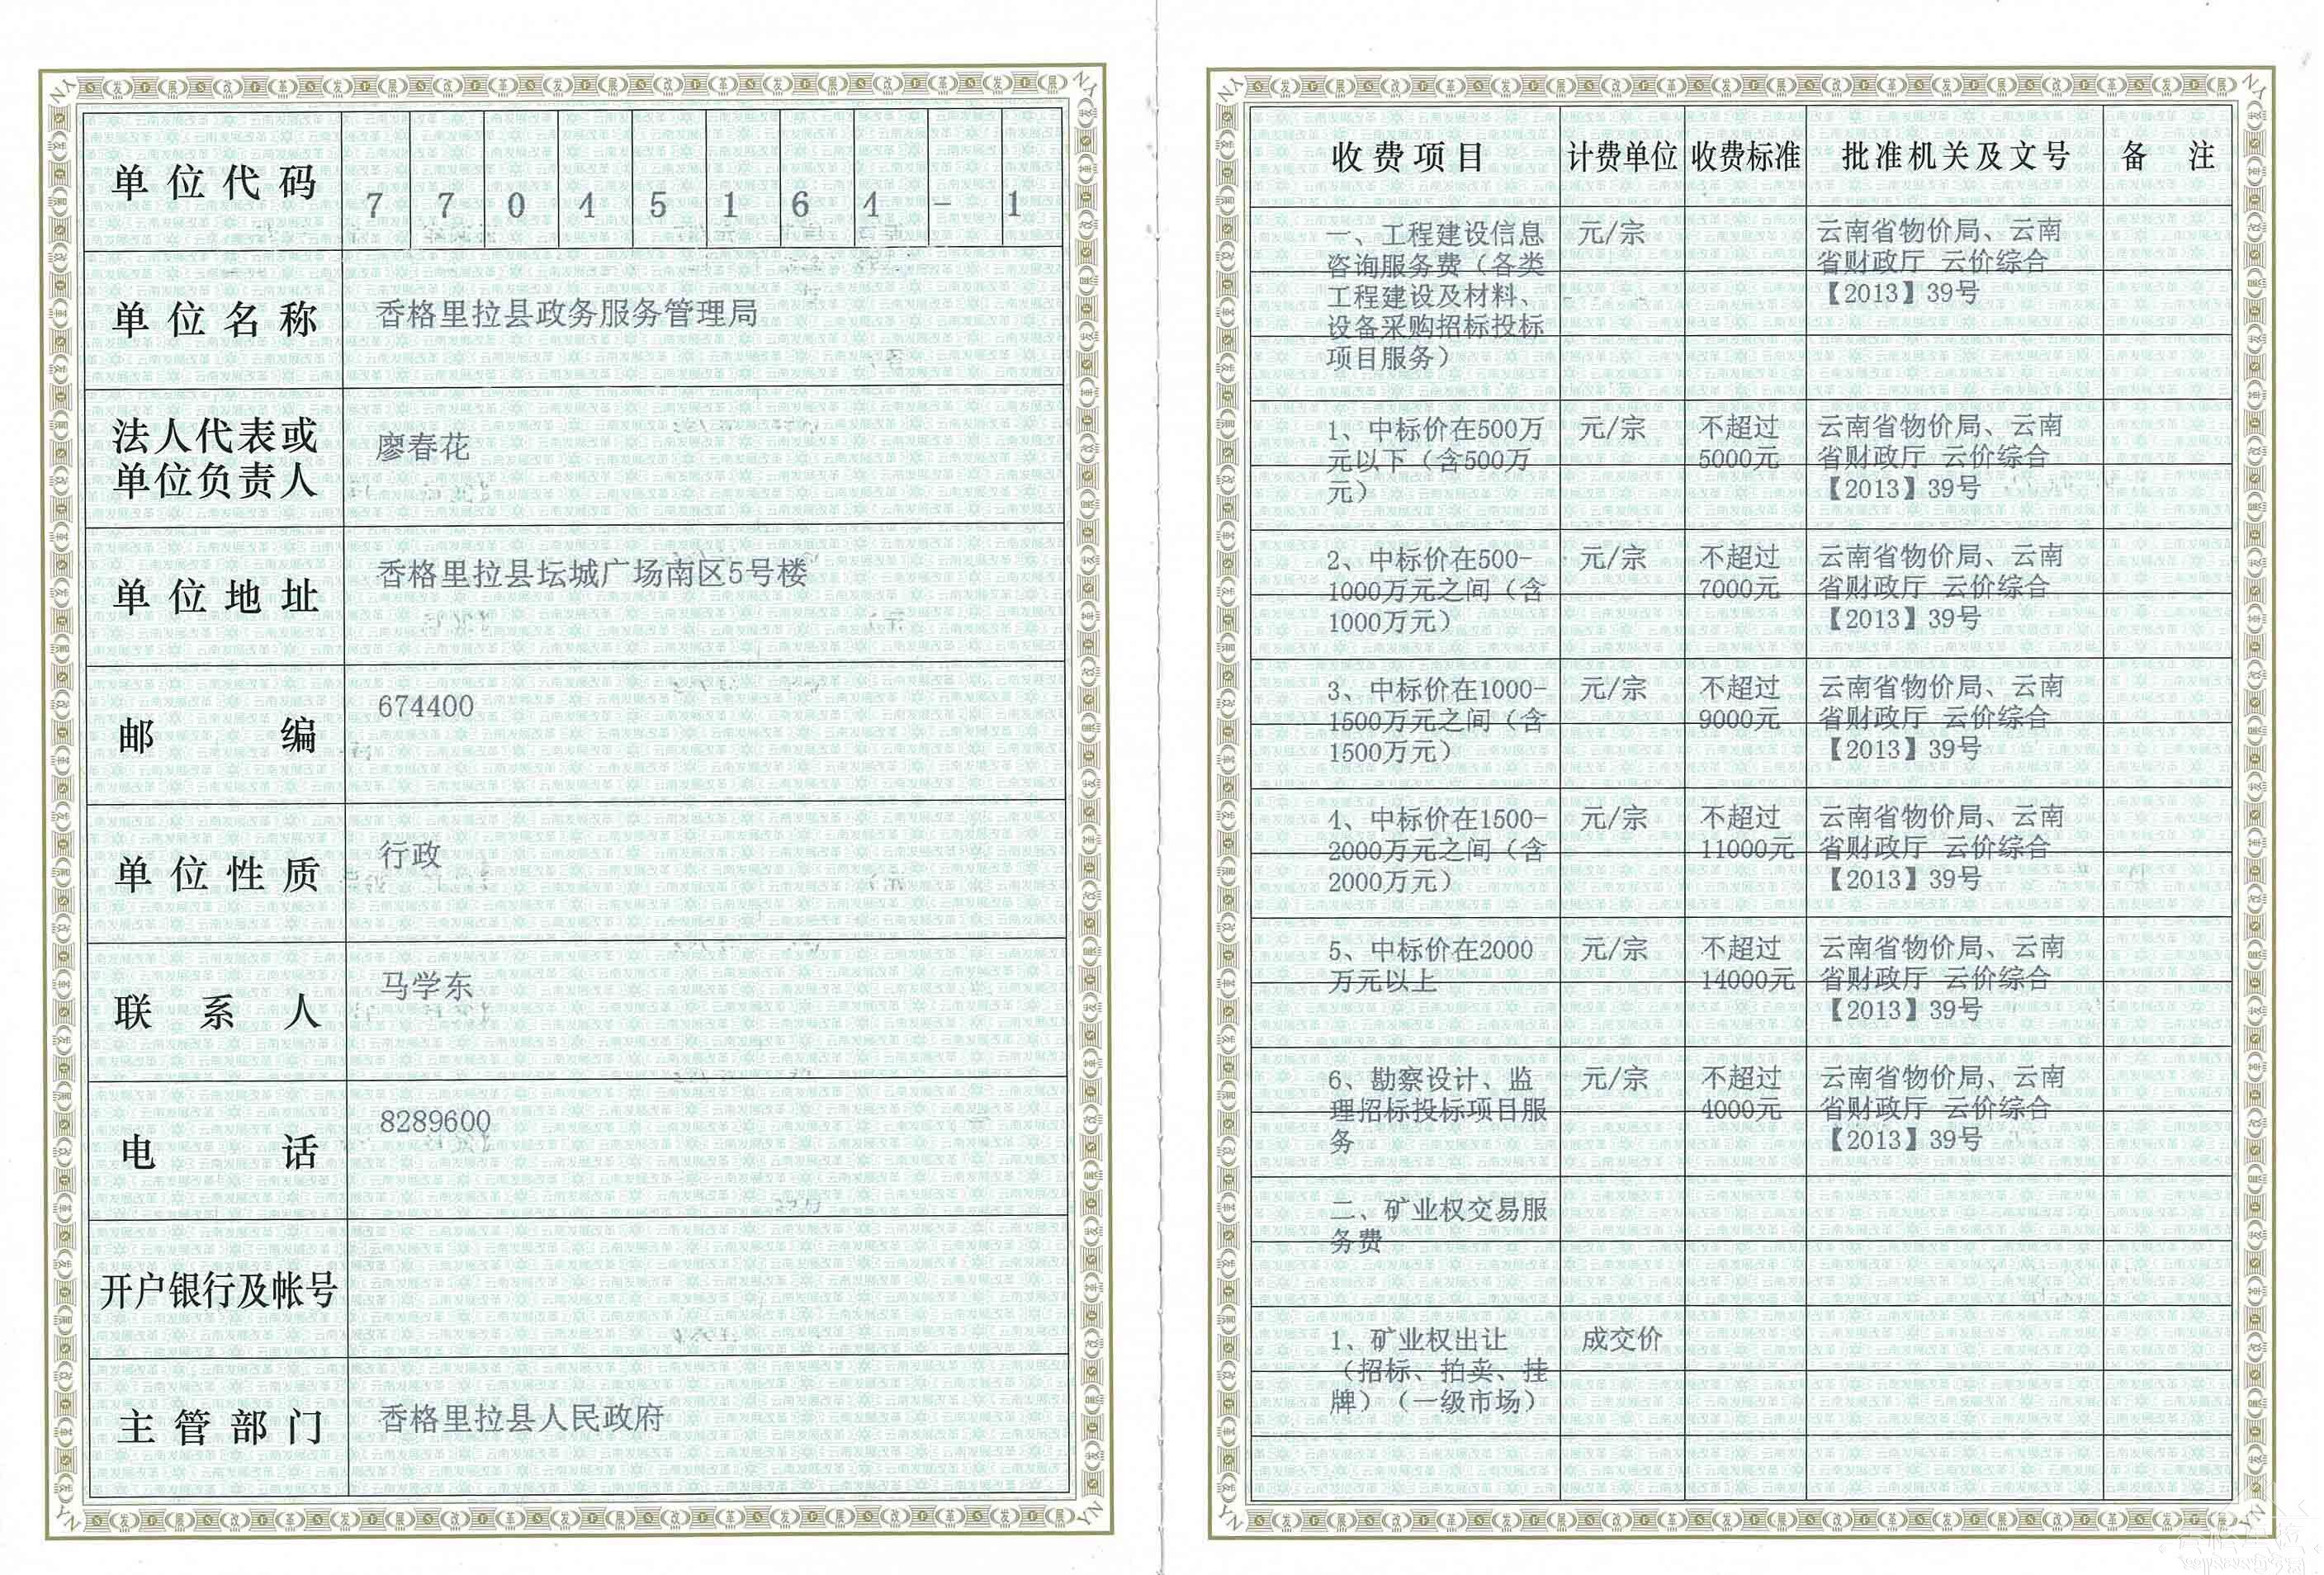 单位代码 770451641-1
单位名称 香格里拉县政务服务管理局
法人代表或
单位负责人 廖春花
单位地址 香格里拉县坛城广场南区5号楼
邮编 674400
单位性质 行政
联系人 马学东
电话 8289600
开户银行及帐号
主管部门 香格里拉县人民政府
收费项目 计费单位 收费标准 批准机关及文号 备注
一、工程建设信息 元/宗 云南省物价局、云南
咨询服务费（各类 省财政厅 云价综合
工程建设及材料、 【2013】39号
设备采购招标投标
项目服务）
1、中标价在500万 元/宗 不超过 云南省物价局、云南
元以下（含500万 5000元 省财政厅 云价综合
元） 【2013】39号
2、中标价在500- 元/宗 不超过 云南省物价局、云南
1000万元之间（含 7000元 省财政厅 云价综合
1000万元） 【2013】39号
3、中标价在1000- 元/宗 不超过 云南省物价局、云南
1500万元之间（含 9000元 省财政厅 云价综合
1500万元） 【2013】39号
4、中标价在1500- 元/宗 不超过 云南省物价局、云南
2000万元之间（含 11000元 省财政厅 云价综合
2000万元） 【2013】39号
5、中标价在2000 元/宗 不超过 云南省物价局、云南
万元以上 14000元 省财政厅 云价综合
【2013】39号
6、勘察设计、监 元/宗 不超过 云南省物价局、云南
理招标投标项目服 4000元 省财政厅 云价综合
务 【2013】39号
二、矿业权交易服
务费
1、矿业权出让 成交价
（招标、拍卖、挂
牌）（一级市场）